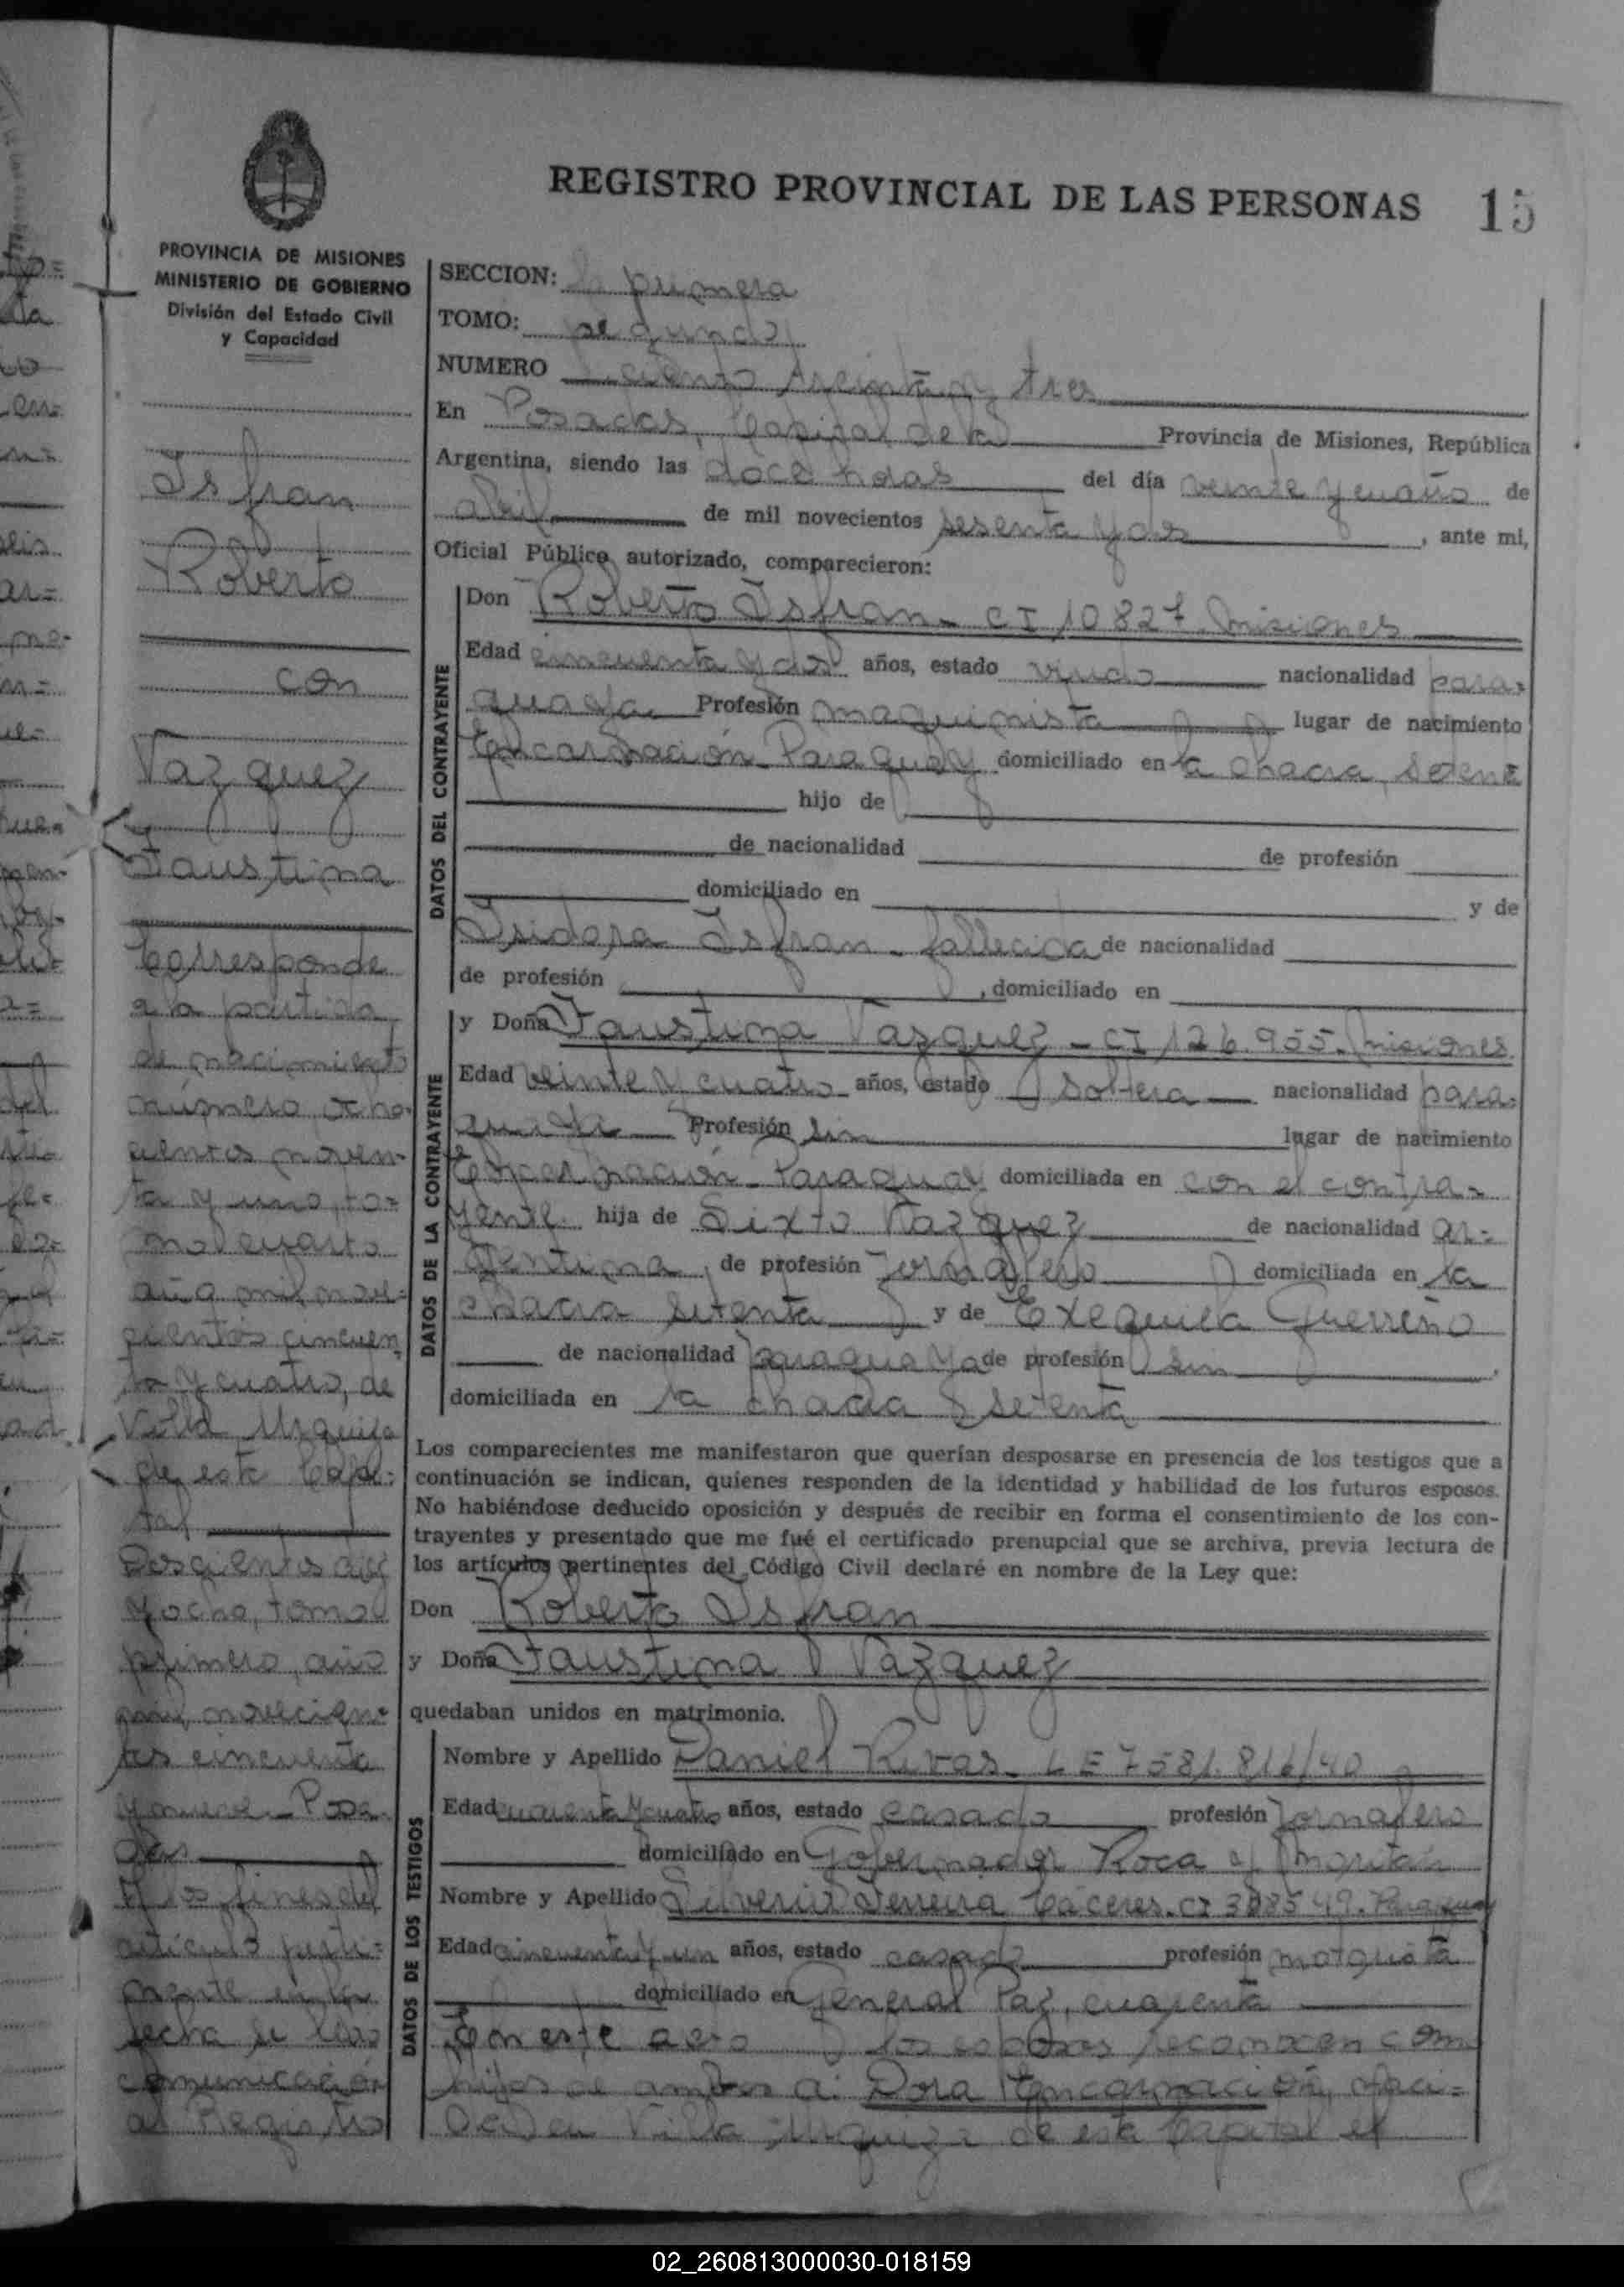 REGISTRO PROVINCIAL DE LAS PERSONAS 15
PROVINCIA DE MISIONES
MINISTERIO DE GOBIERNO
División del Estado Civil
y Capacidad
Isfran
Roberto
con
Vazquez
Faustina
Corresponde
a la partida
de nacimiento
número ocho-
cientos noven-
ta y uno, to-
mo cuarto
año mil nove-
cientos cincuen
ta y cuatro, de
Villa Urquiza
de esta Capi-
tal
Doscientos diez
y ocho, tomo
primero, año
mil novecien-
tos cincuenta
y nueve - Posa
das
A los fines del
artículo
en la
fecha se libró
comunicación
al Registro
SECCION: la primera
TOMO: segundo
NUMERO ciento treinta y tres
En Posadas, Capital de la Provincia de Misiones, República
Argentina, siendo las doce horas del día veinte y cuatro de
abril de mil novecientos sesenta y dos, ante mi,
Oficial Público autorizado, comparecieron:
DATOS DEL CONTRAYENTE
Don Roberto Isfran - CI 10827 Misiones
Edad cincuenta y dos años, estado viudo nacionalidad para-
guaya Profesión maquinista lugar de nacimiento
Encarnación - Paraguay domiciliado en la chacra setenta
hijo de
de nacionalidad de profesión
domiciliado en y de
Isidora Isfran - fallecida de nacionalidad
de profesión , domiciliado en
DATOS DE LA CONTRAYENTE
y Doña Faustina Vazquez - CI 126.955. Misiones
Edad veinte y cuatro años, estado soltera nacionalidad para-
guaya Profesión sin lugar de nacimiento
Encarnación - Paraguay domiciliada en con el contra-
yente hija de Sixto Vazquez de nacionalidad ar-
gentina, de profesión Jornalero domiciliada en la
chacra setenta y de Exequiela Guerreño
de nacionalidad paraguaya de profesión sin
domiciliada en la chacra setenta
Los comparecientes me manifestaron que querían desposarse en presencia de los testigos que a
continuación se indican, quienes responden de la identidad y habilidad de los futuros esposos.
No habiéndose deducido oposición y después de recibir en forma el consentimiento de los con-
trayentes y presentado que me fué el certificado prenupcial que se archiva, previa lectura de
los artículos pertinentes del Código Civil declaré en nombre de la Ley que:
Don Roberto Isfran
y Doña Faustina Vazquez
quedaban unidos en matrimonio.
DATOS DE LOS TESTIGOS
Nombre y Apellido Daniel Rivas - LE 7581.816/40
Edad cuarenta y cuatro años, estado casado profesión Jornalero
domiciliado en Gobernador Roca y
Nombre y Apellido Ferreira Cáceres - CI Paraguay
Edad cincuenta y un años, estado casado profesión
domiciliado en General Paz, cuarenta
En este acto los esposos reconocen como
hijos de ambos a: Dora Encarnación, naci-
da en Villa Urquiza de esta Capital el
02_260813000030-018159